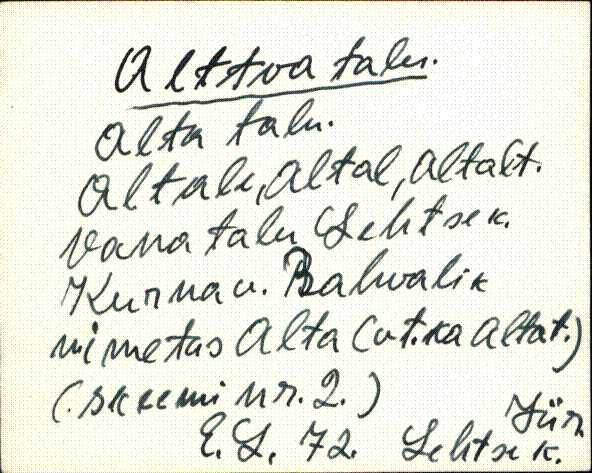 Altt​va talu.
Alta talu.
Altale, Altal, Altalt.
Vana talu Lehtse k.
Kurna v. Rahvalik
nimetus Alta (vt. ka Altat.)
(skeemi nr. 2.)
Jür
E. L. 72. Lehtse k.